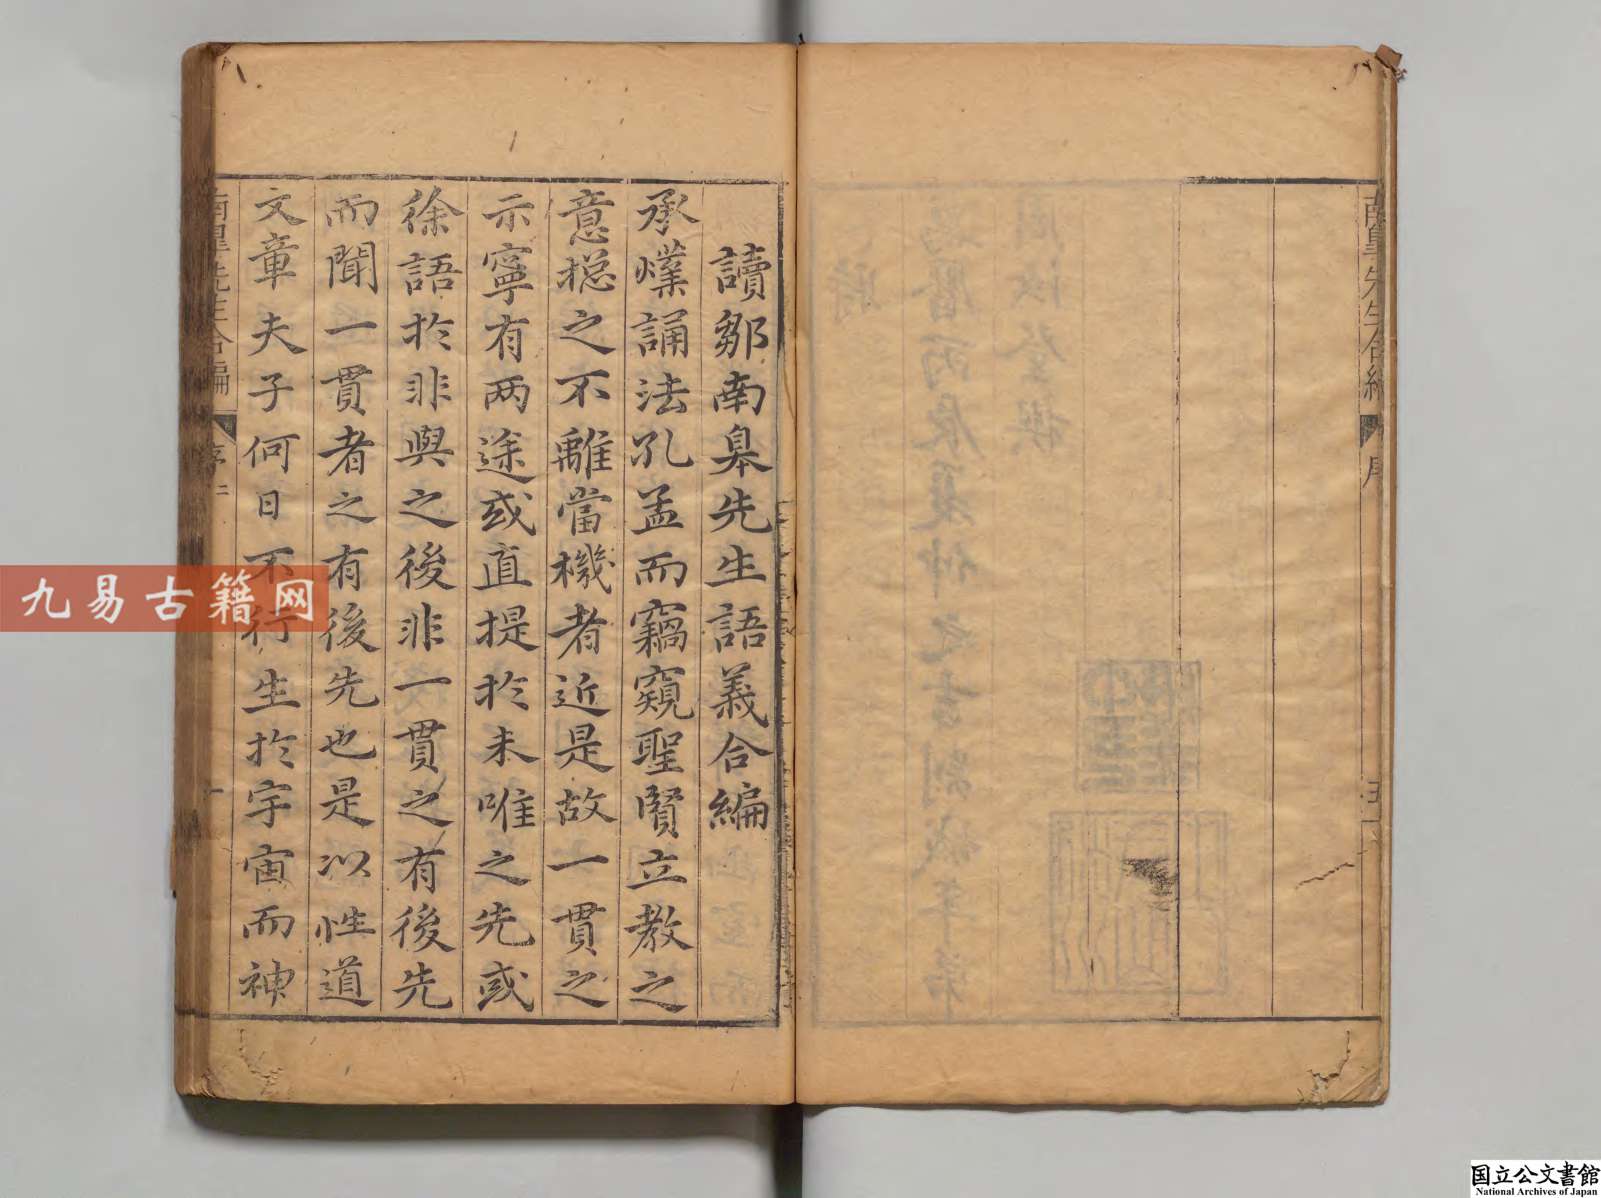 南皐先生合編
序
五
讀鄒南皐先生語義合編
承爃誦法孔孟而竊窺聖賢立教之
意揔之不離當機者近是故一貫之
示寧有两途或直提於未唯之先或
徐語於非與之後非一貫之有後先
而聞一貫者之有後先也是以性道
文章夫子何日不行生於宇宙而神
南皐先生合編
序二
一
九易古籍网
国立公文書館
National Archives of Japan